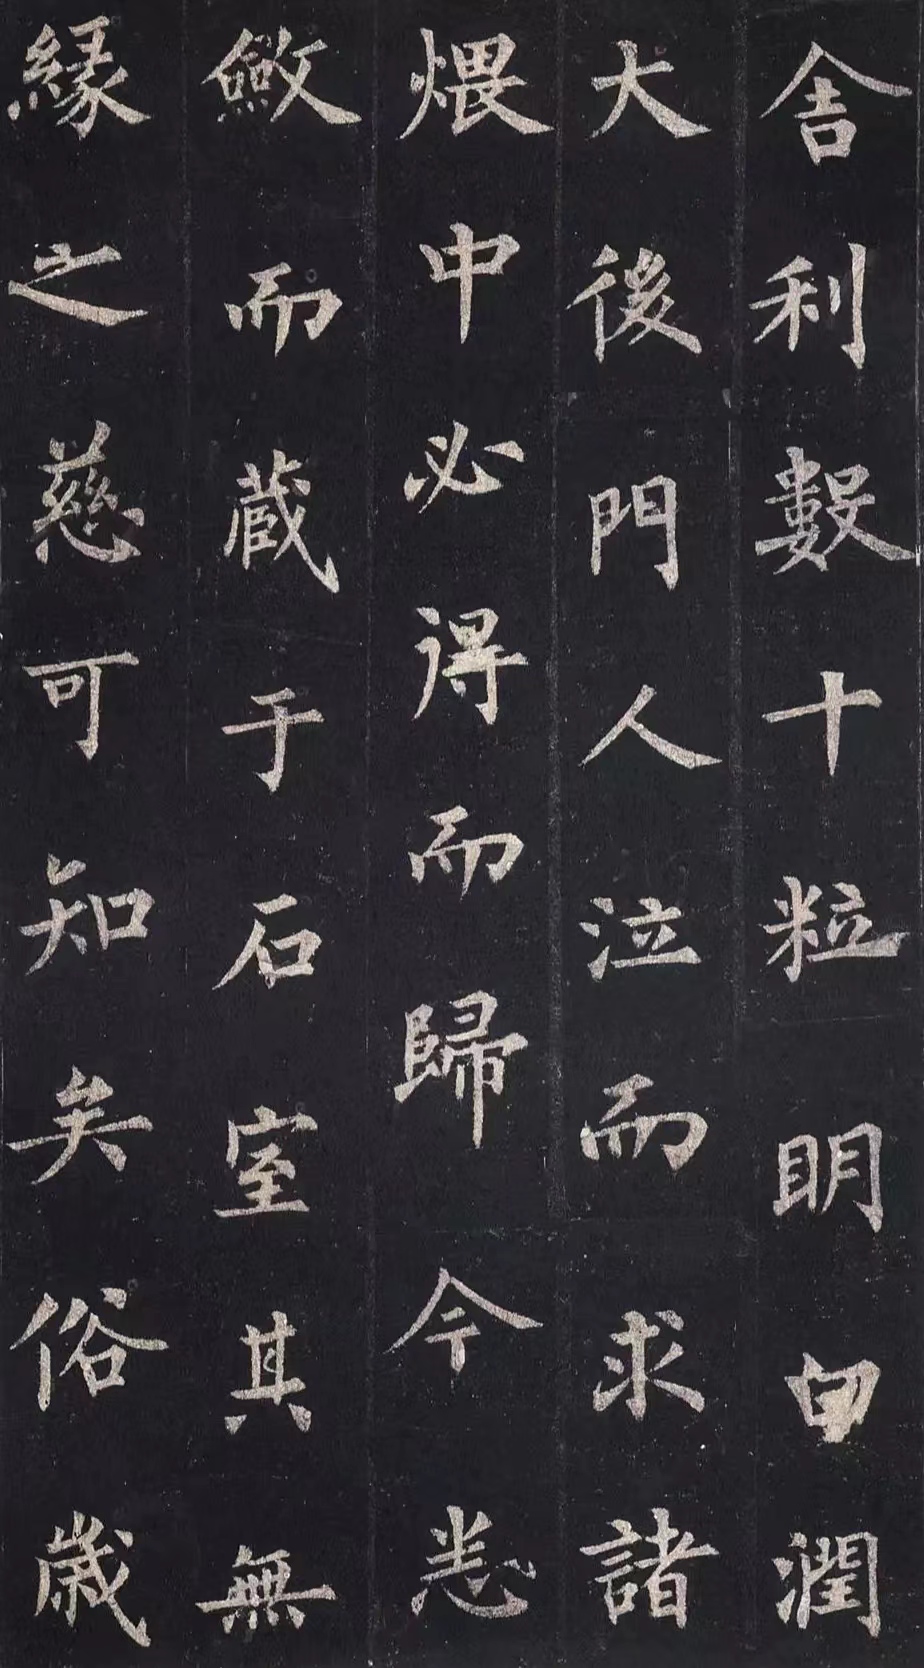 舍利數十粒明白潤
大後門人泣而求諸
煨中必得而歸今悉
斂而藏于石室其無
緣之慈可知矣俗歲